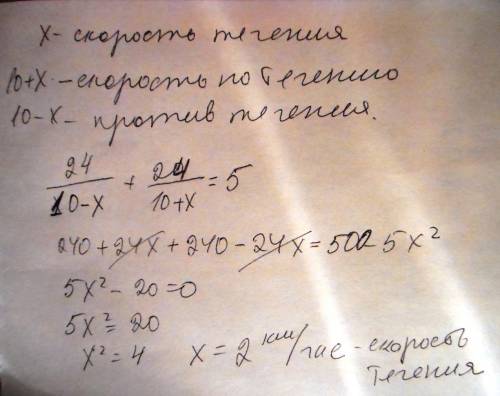 x - скорость течения
10+x - скорость по течению
10-x - против течения.
24/(10-x) + 24/(10+x) = 5
240 + 24x + 240 - 24x = 500 - 5x²
5x² - 20 = 0
5x² = 20
x² = 4 x = 2 км/час - скорость
течения